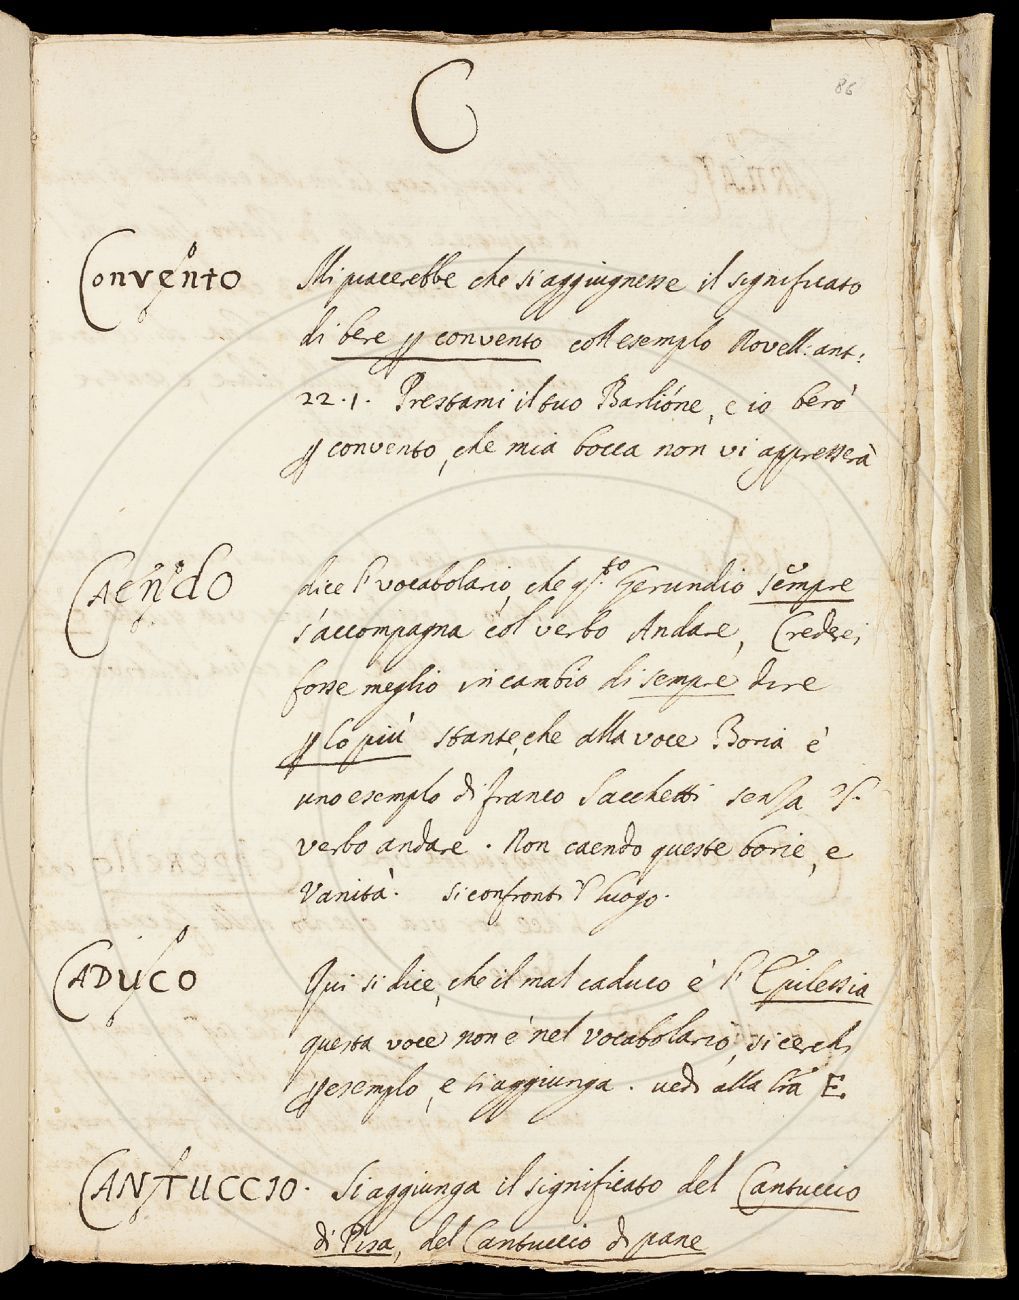 86
C
Convento Mi piacerebbe che si aggiugnesse il significato
di bere p convento coll esemplo Novell: ant:
22.1. Prestami il tuo Barlióne, e io berò
p convento, che mia bocca non vi appresserà
Caendo dice l' vocabolario, che q.to Gerundio sempre
s'accompagna col verbo Andare, Crederei
forse meglio in cambio di sempre dire
p lo più stante, che alla voce Boria è
uno esemplo di Franco Sacchetti senza il
verbo andare. Non caendo queste borie, e
Vanità. si confronti l' luogo.
Caduco Qui si dice, che il mal caduco è l' Epilessia
questa voce non è nel vocabolario, si cerchi
p esemplo, e si aggiunga. vedi alla lra E.
CANTUCCIO. Si aggiunga il significato del Cantuccio
di Pisa, del Cantuccio di pane